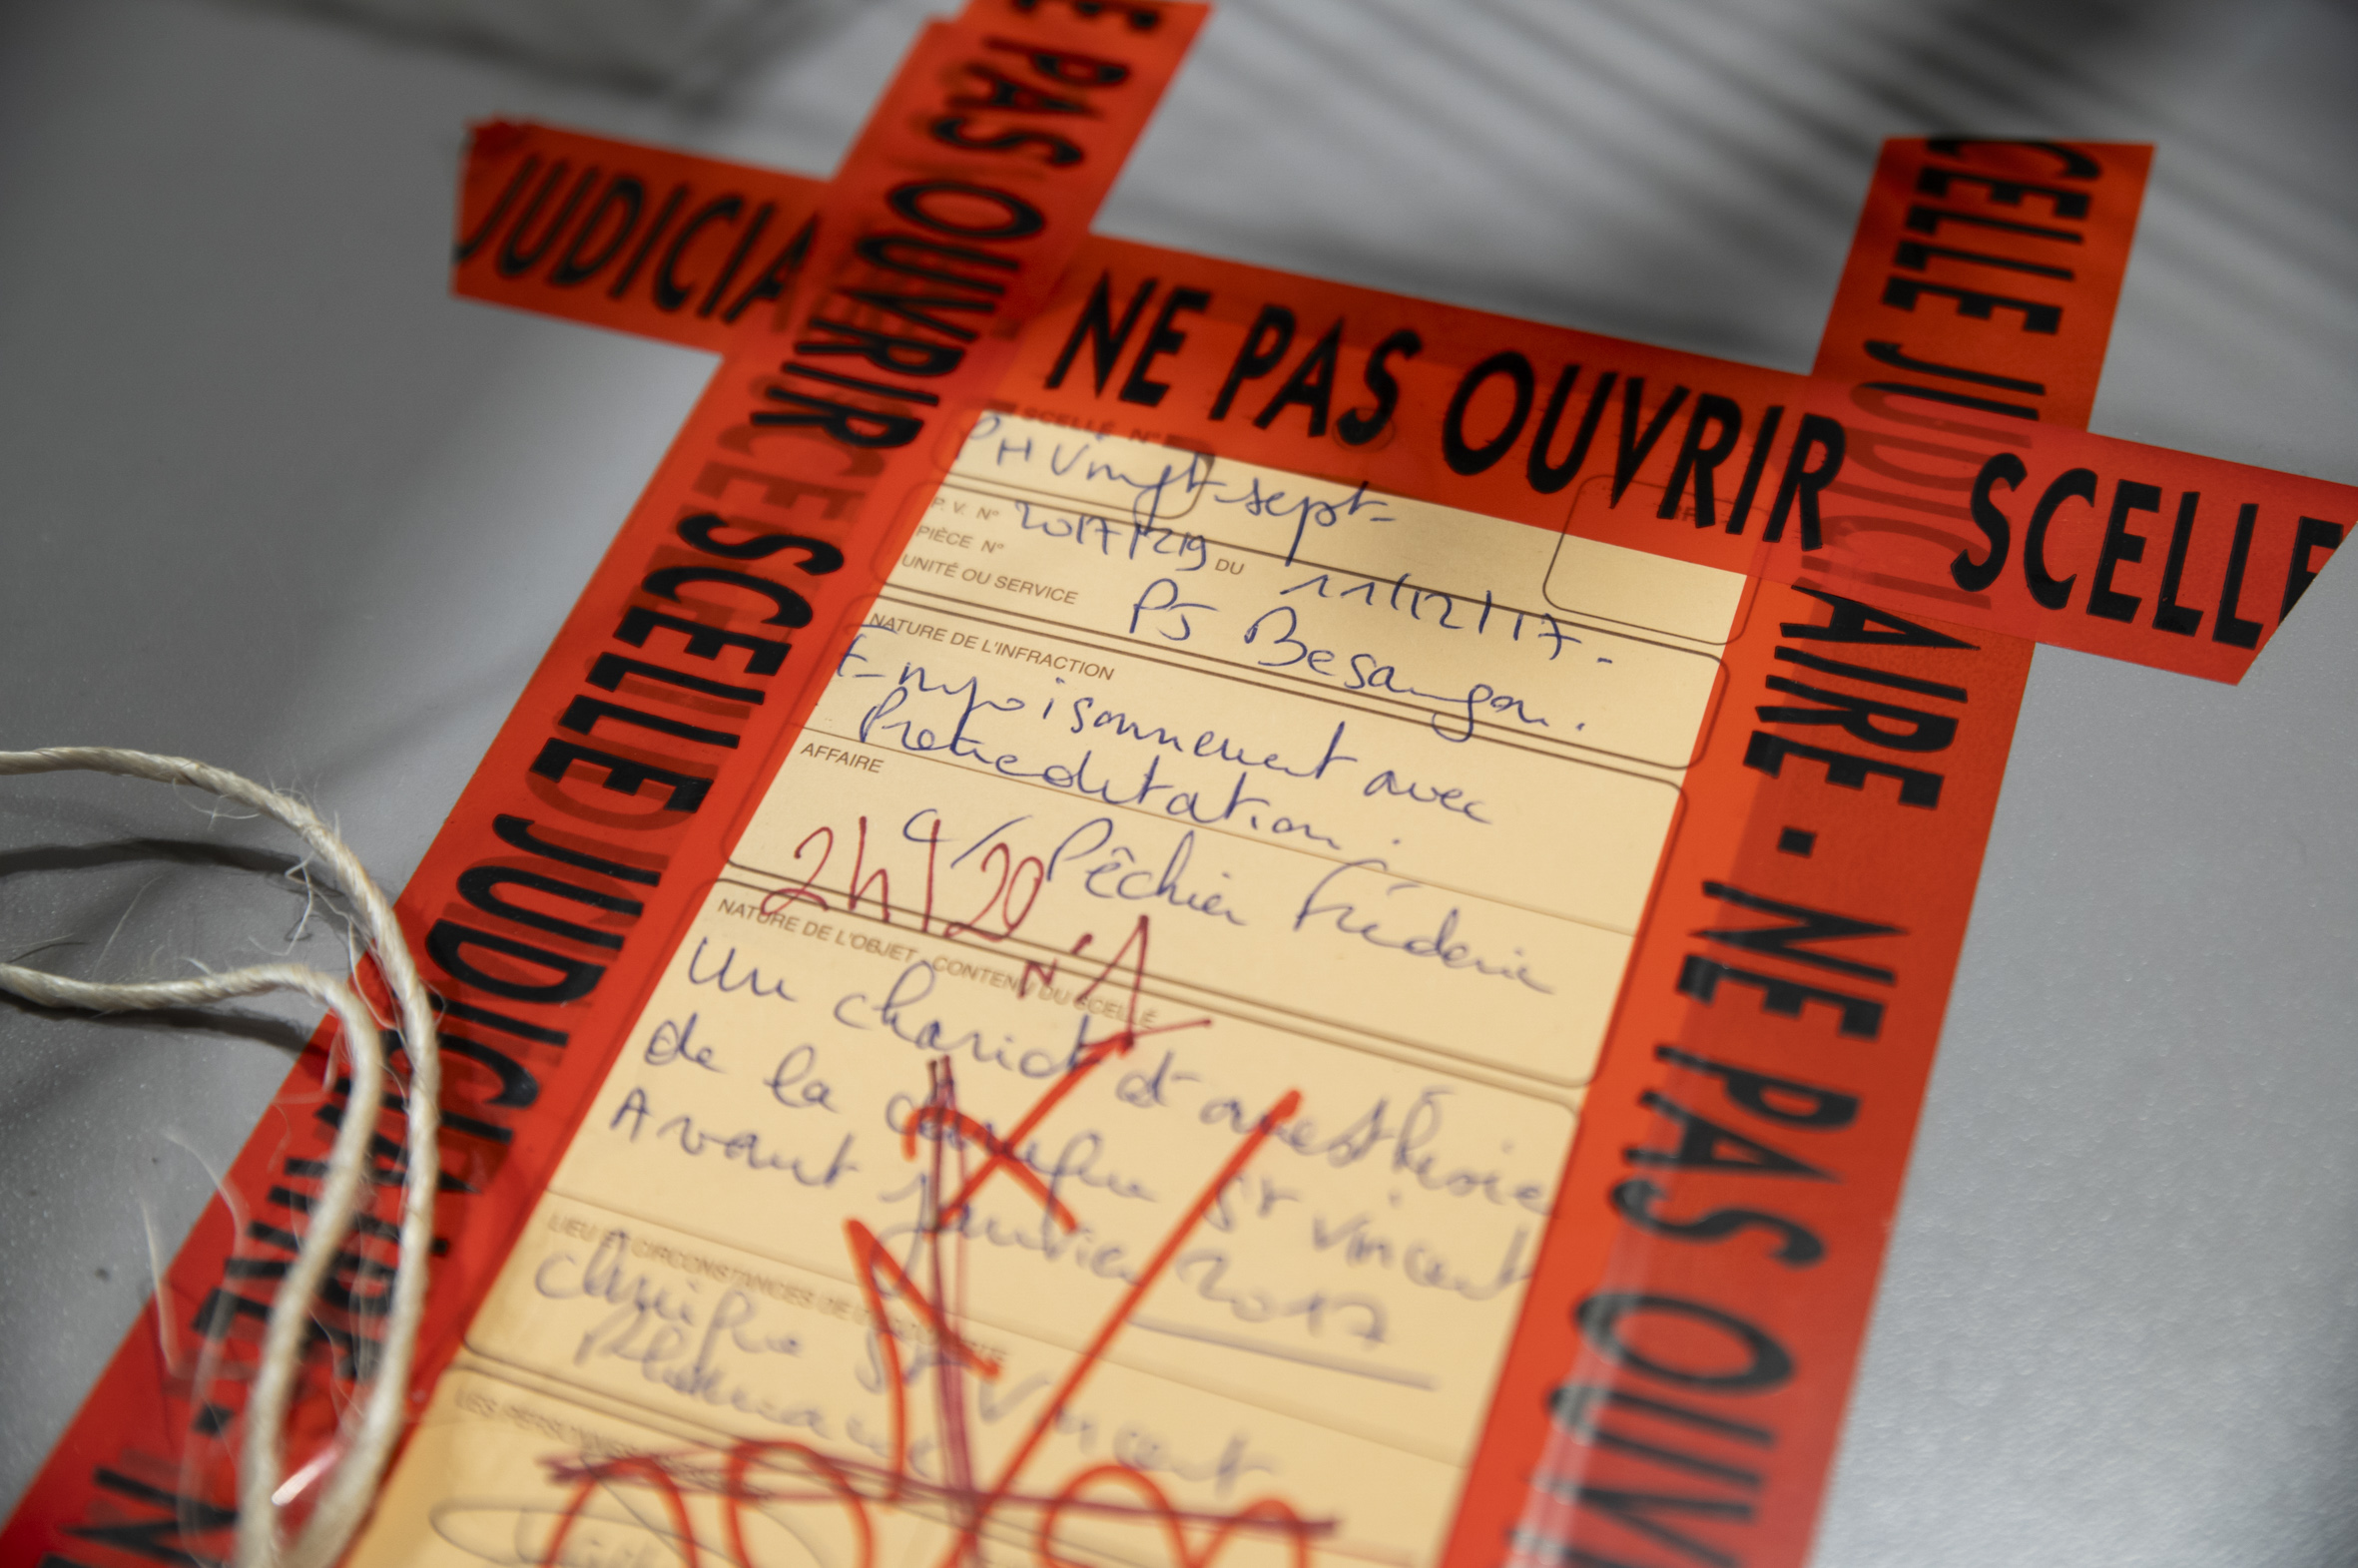 E PAS OUVRIR
JUDICIA
NE PAS OUVRIR
SCELLE
CELLE JUDICIAIRE - NE PAS OUVRIR
SCELLE JUDICIAIRE - N
SCELLÉ N°
PH Vingt-sept-
P.V. N° 2017/1219 DU 11/12/17.
PIÈCE N°
UNITÉ OU SERVICE PJ Besançon.
NATURE DE L'INFRACTION
Empoisonnement avec
Préméditation.
AFFAIRE
C/ Pêchier Frédéric
2h/20 N°1
NATURE DE L'OBJET - CONTENU DU SCELLÉ
Un chariot d'anesthésie
de la clinique St Vincent
Avant Janvier 2017
LIEU ET CIRCONSTANCES DE LA DÉCOUVERTE
Clinique St Vincent
Pharmacie
LES PERSONNES